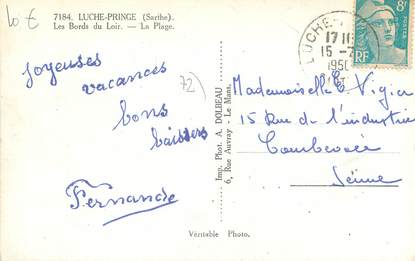 10 €
7184. LUCHE-PRINGE (Sarthe).
Les Bords du Loir. — La Plage.
Joyeuses
vacances
bons
baisers
Fernande
72)
Imp. Phot. A. DOLBEAU
6, Rue Auvray - Le Mans
LUCHE-
17 H
15 -
1950
8F
POSTES
RF
Mademoiselle E Vigier
15 Rue de l'industrie
Courbevoie
Seine
Véritable Photo.